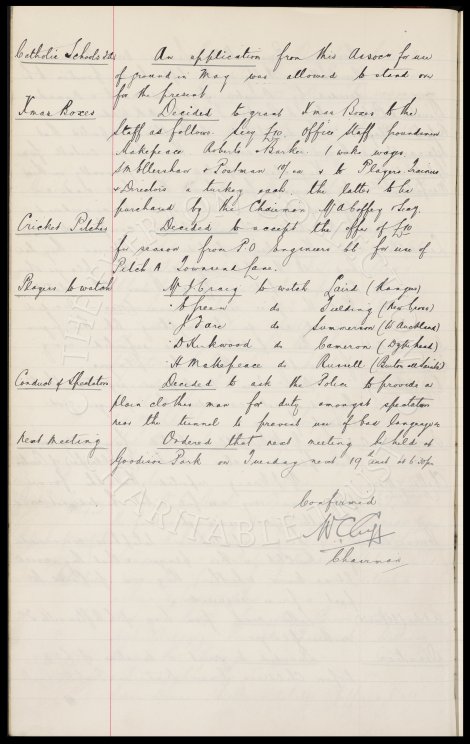 Catholic Schools An application from this Assocn for use
of ground in May was allowed to stand over
for the present
Xmas Boxes Decided to grant Xmas Boxes to the
Staff as follows. Secy £10. Office Staff, groundsmen
Makepeace. Roberts & Barker. 1 weeks wages
& Postman 10/- ea & to Players Trainers
& Directors a turkey each. the latter to be
purchased by the Chairman, Mr A Coffey & Secy.
Cricket Pitches Decided to accept the offer of £70
for season from P.O. Engineers CC for use of
Pitch A Townsend Lane.
Players to watch Mr J Craig to watch Laird (Rangers)
" do Fielding (New Cross)
" J Fare do Summerson (W Auckland)
" D Kirkwood do Cameron (Dykehead)
" H Makepeace do Russell
Conduct of Spectators Decided to ask the Police to provide a
plain clothes man for duty amongst spectators
near the tunnel to prevent use of bad language
Next Meeting Ordered that next meeting be held at
Goodison Park on Tuesday next 19th inst at 6.30pm
Confirmed
W C Cuff
Chairman
THE EVERTON
CHARITABLE